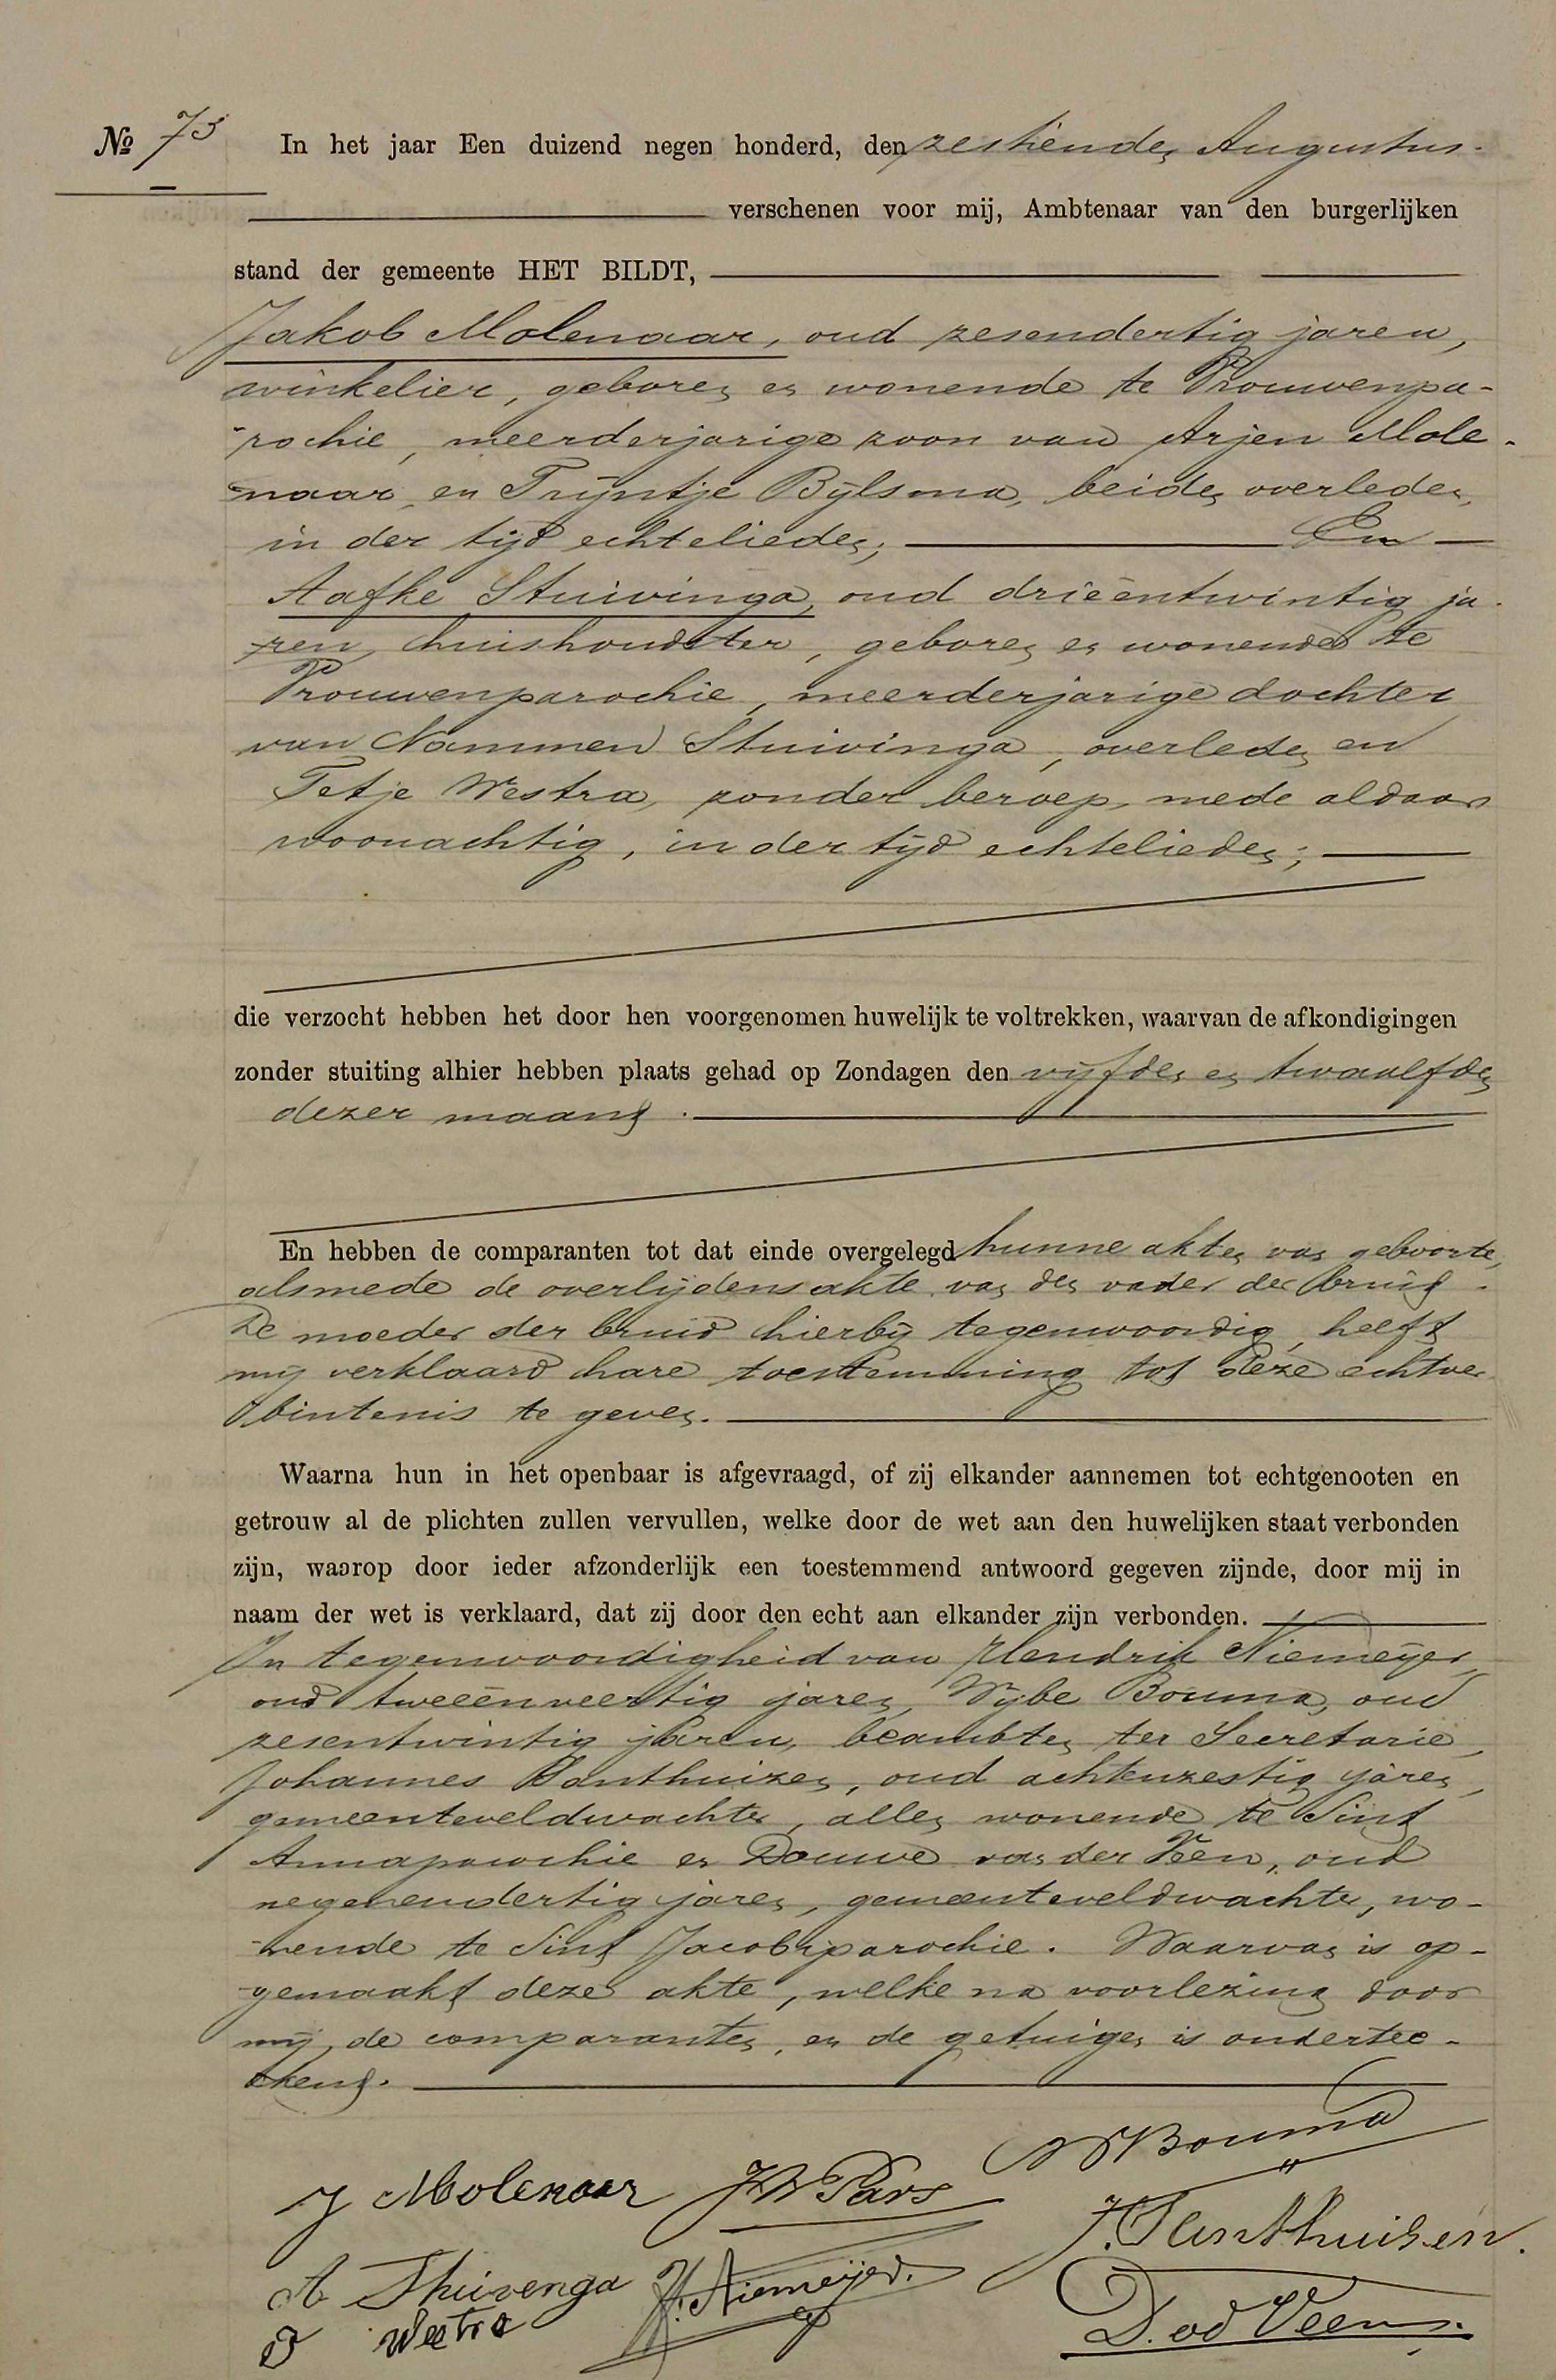 № 73
In het jaar Een duizend negen honderd, den zestienden Augustus.
verschenen voor mij, Ambtenaar van den burgerlijken
stand der gemeente HET BILDT,
Jakob Molenaar, oud zesendertig jaren,
winkelier, geboren en wonende te Vrouwenpa-
rochie, meerderjarige zoon van Arjen Mole-
naar, en Trijntje Bijlsma, beiden overleden,
in der tijd echtelieden; En
Aafke Stuivinga, oud drieëntwintig ja-
ren, huishoudster, geboren en wonende te
Vrouwenparochie, meerderjarige dochter
van Nammen Stuivinga, overleden en
Tetje Westra, zonder beroep, mede aldaar
woonachtig, in der tijd echtelieden;
die verzocht hebben het door hen voorgenomen huwelijk te voltrekken, waarvan de afkondigingen
zonder stuiting alhier hebben plaats gehad op Zondagen den vijfden en twaalfden
dezer maand.
En hebben de comparanten tot dat einde overgelegd hunne akten van geboorte,
alsmede de overlijdensakte van den vader der bruid.
De moeder der bruid hierbij tegenwoordig, heeft
mij verklaard hare toestemming tot deze echtver
bintenis te geven.
Waarna hun in het openbaar is afgevraagd, of zij elkander aannemen tot echtgenooten en
getrouw al de plichten zullen vervullen, welke door de wet aan den huwelijken staat verbonden
zijn, waarop door ieder afzonderlijk een toestemmend antwoord gegeven zijnde, door mij in
naam der wet is verklaard, dat zij door den echt aan elkander zijn verbonden.
In tegenwoordigheid van Hendrik Niemeijer,
oud tweeënveertig jaren, Wijbe Bouma, oud
zesentwintig jaren, beambten ter Secretarie,
Johannes Santhuizen, oud achtenzestig jaren,
gemeenteveldwachter, allen wonende te Sint
Annaparochie en Douwe van der Veen, oud
negenendertig jaren, gemeenteveldwachter, wo-
nende te Sint Jacobiparochie. Waarvan is op-
gemaakt deze akte, welke na voorlezing door
mij, de comparanten, en de getuigen is ondertee-
kend.
J Molenaar JW Pars W Bouma
A Stuivenga H. Niemeijer. J. Santhuisen.
T Westra D. vd Veen.